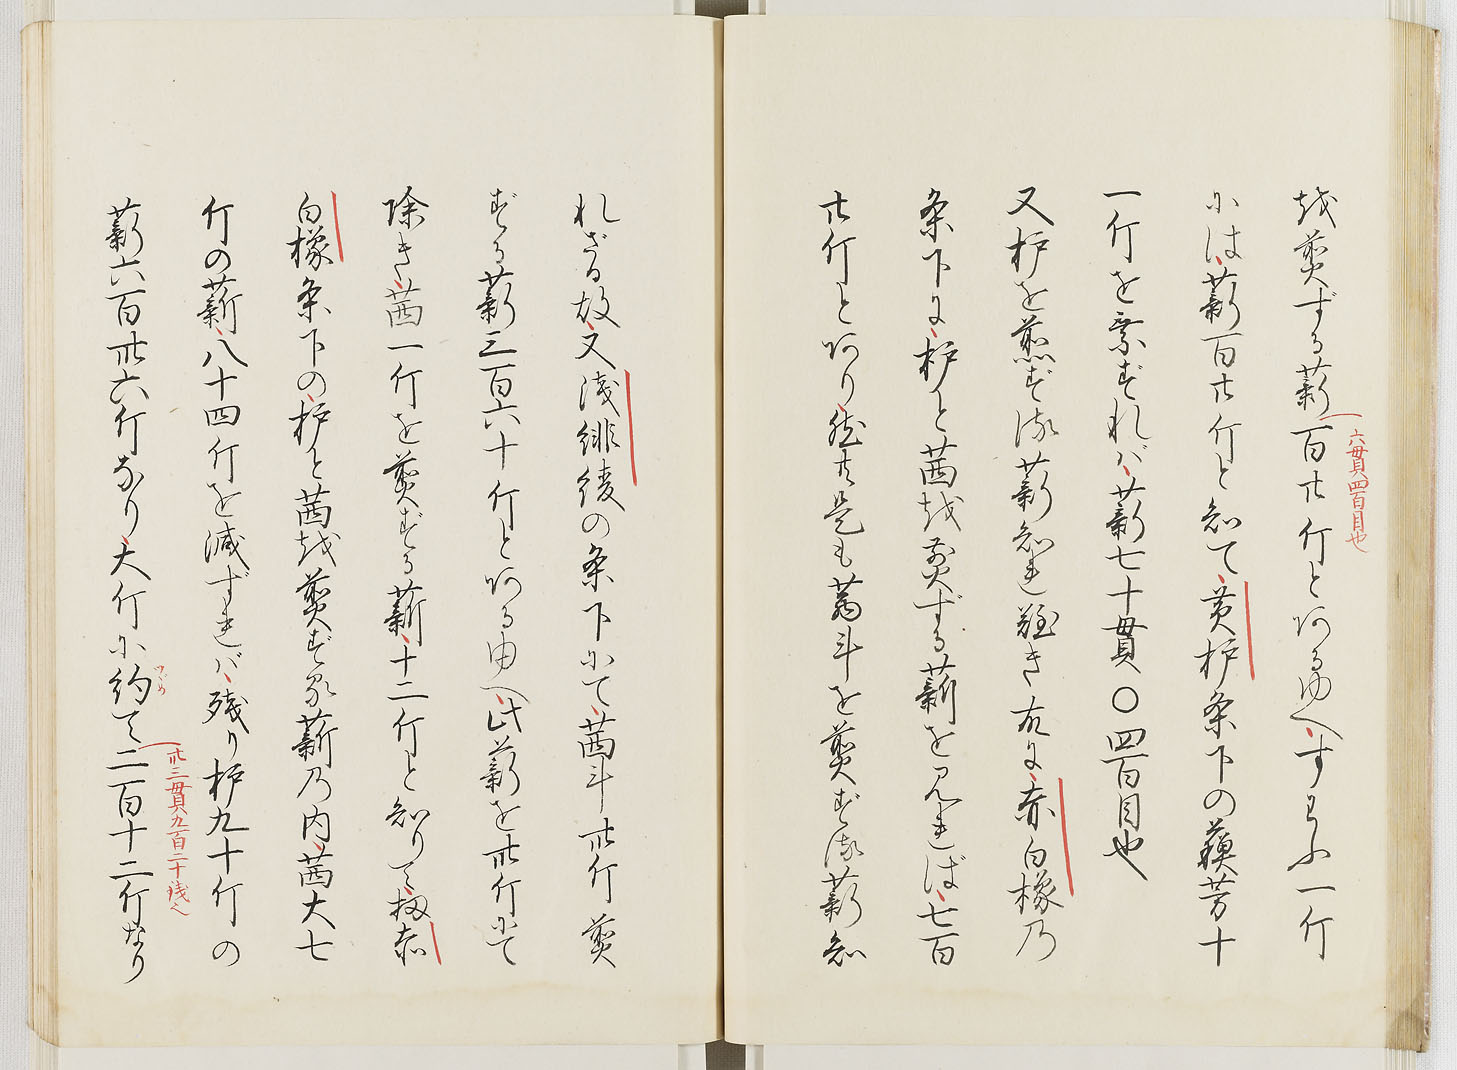 越煎ずる薪百廿斤とあるゆへ、すなふ一斤
六貫四百目也
には、薪百廿斤と知て、黄栌条下の蘓芳十
一斤を乗ずれバ、薪七十貫〇四百目也
又栌を煎ずる薪知れ難き故に、赤白橡乃
条下に、栌と茜越煎ずる薪を見れば、七百
廿斤とあり、然共是も茜斗を煎ずる薪知
れざる故、又浅緋綾の条下にて、茜斗卅斤煎
ずる薪三百六十斤とあるゆへ、此薪を卅斤にて
除き、茜一斤を煎ずる薪、十二斤と知りて、扨赤
白橡条下の、栌と茜越煎ずる薪乃内、茜大七
斤の薪、八十四斤を減ずれバ、残り栌九十斤の
薪六百卅六斤なり、大斤に約て二百十二斤なり
つゞめ
卅三貫九百二十銭へ